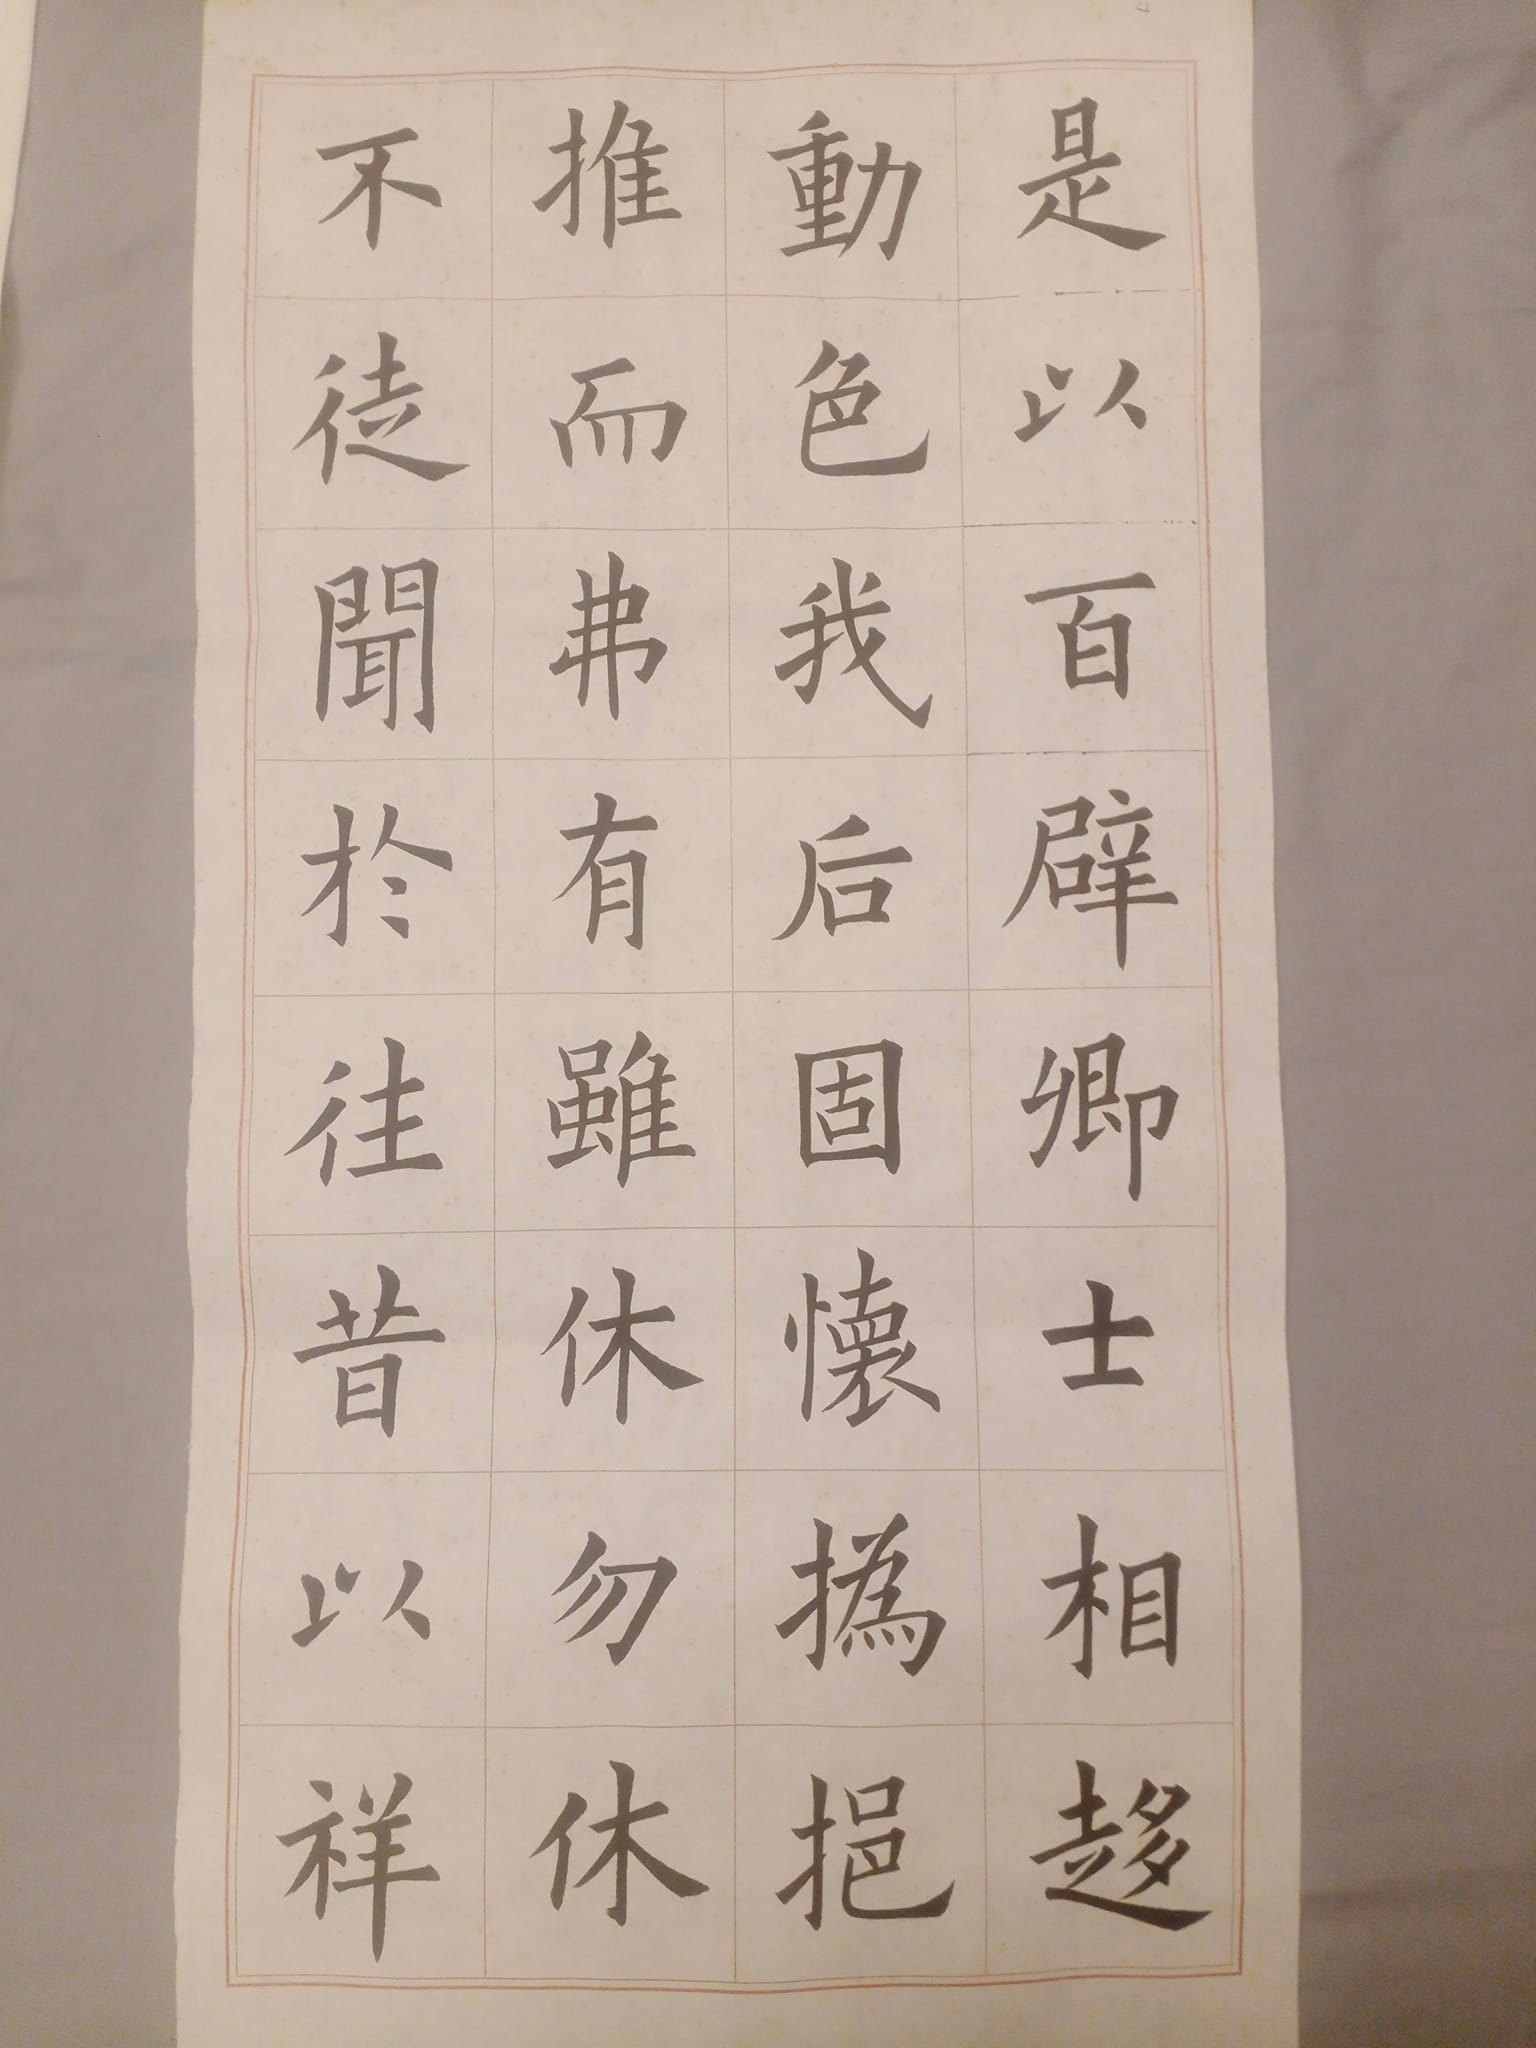 是以百辟卿士相趍
動色我后固懷撝挹
推而弗有雖休勿休
不徒聞於往昔以祥